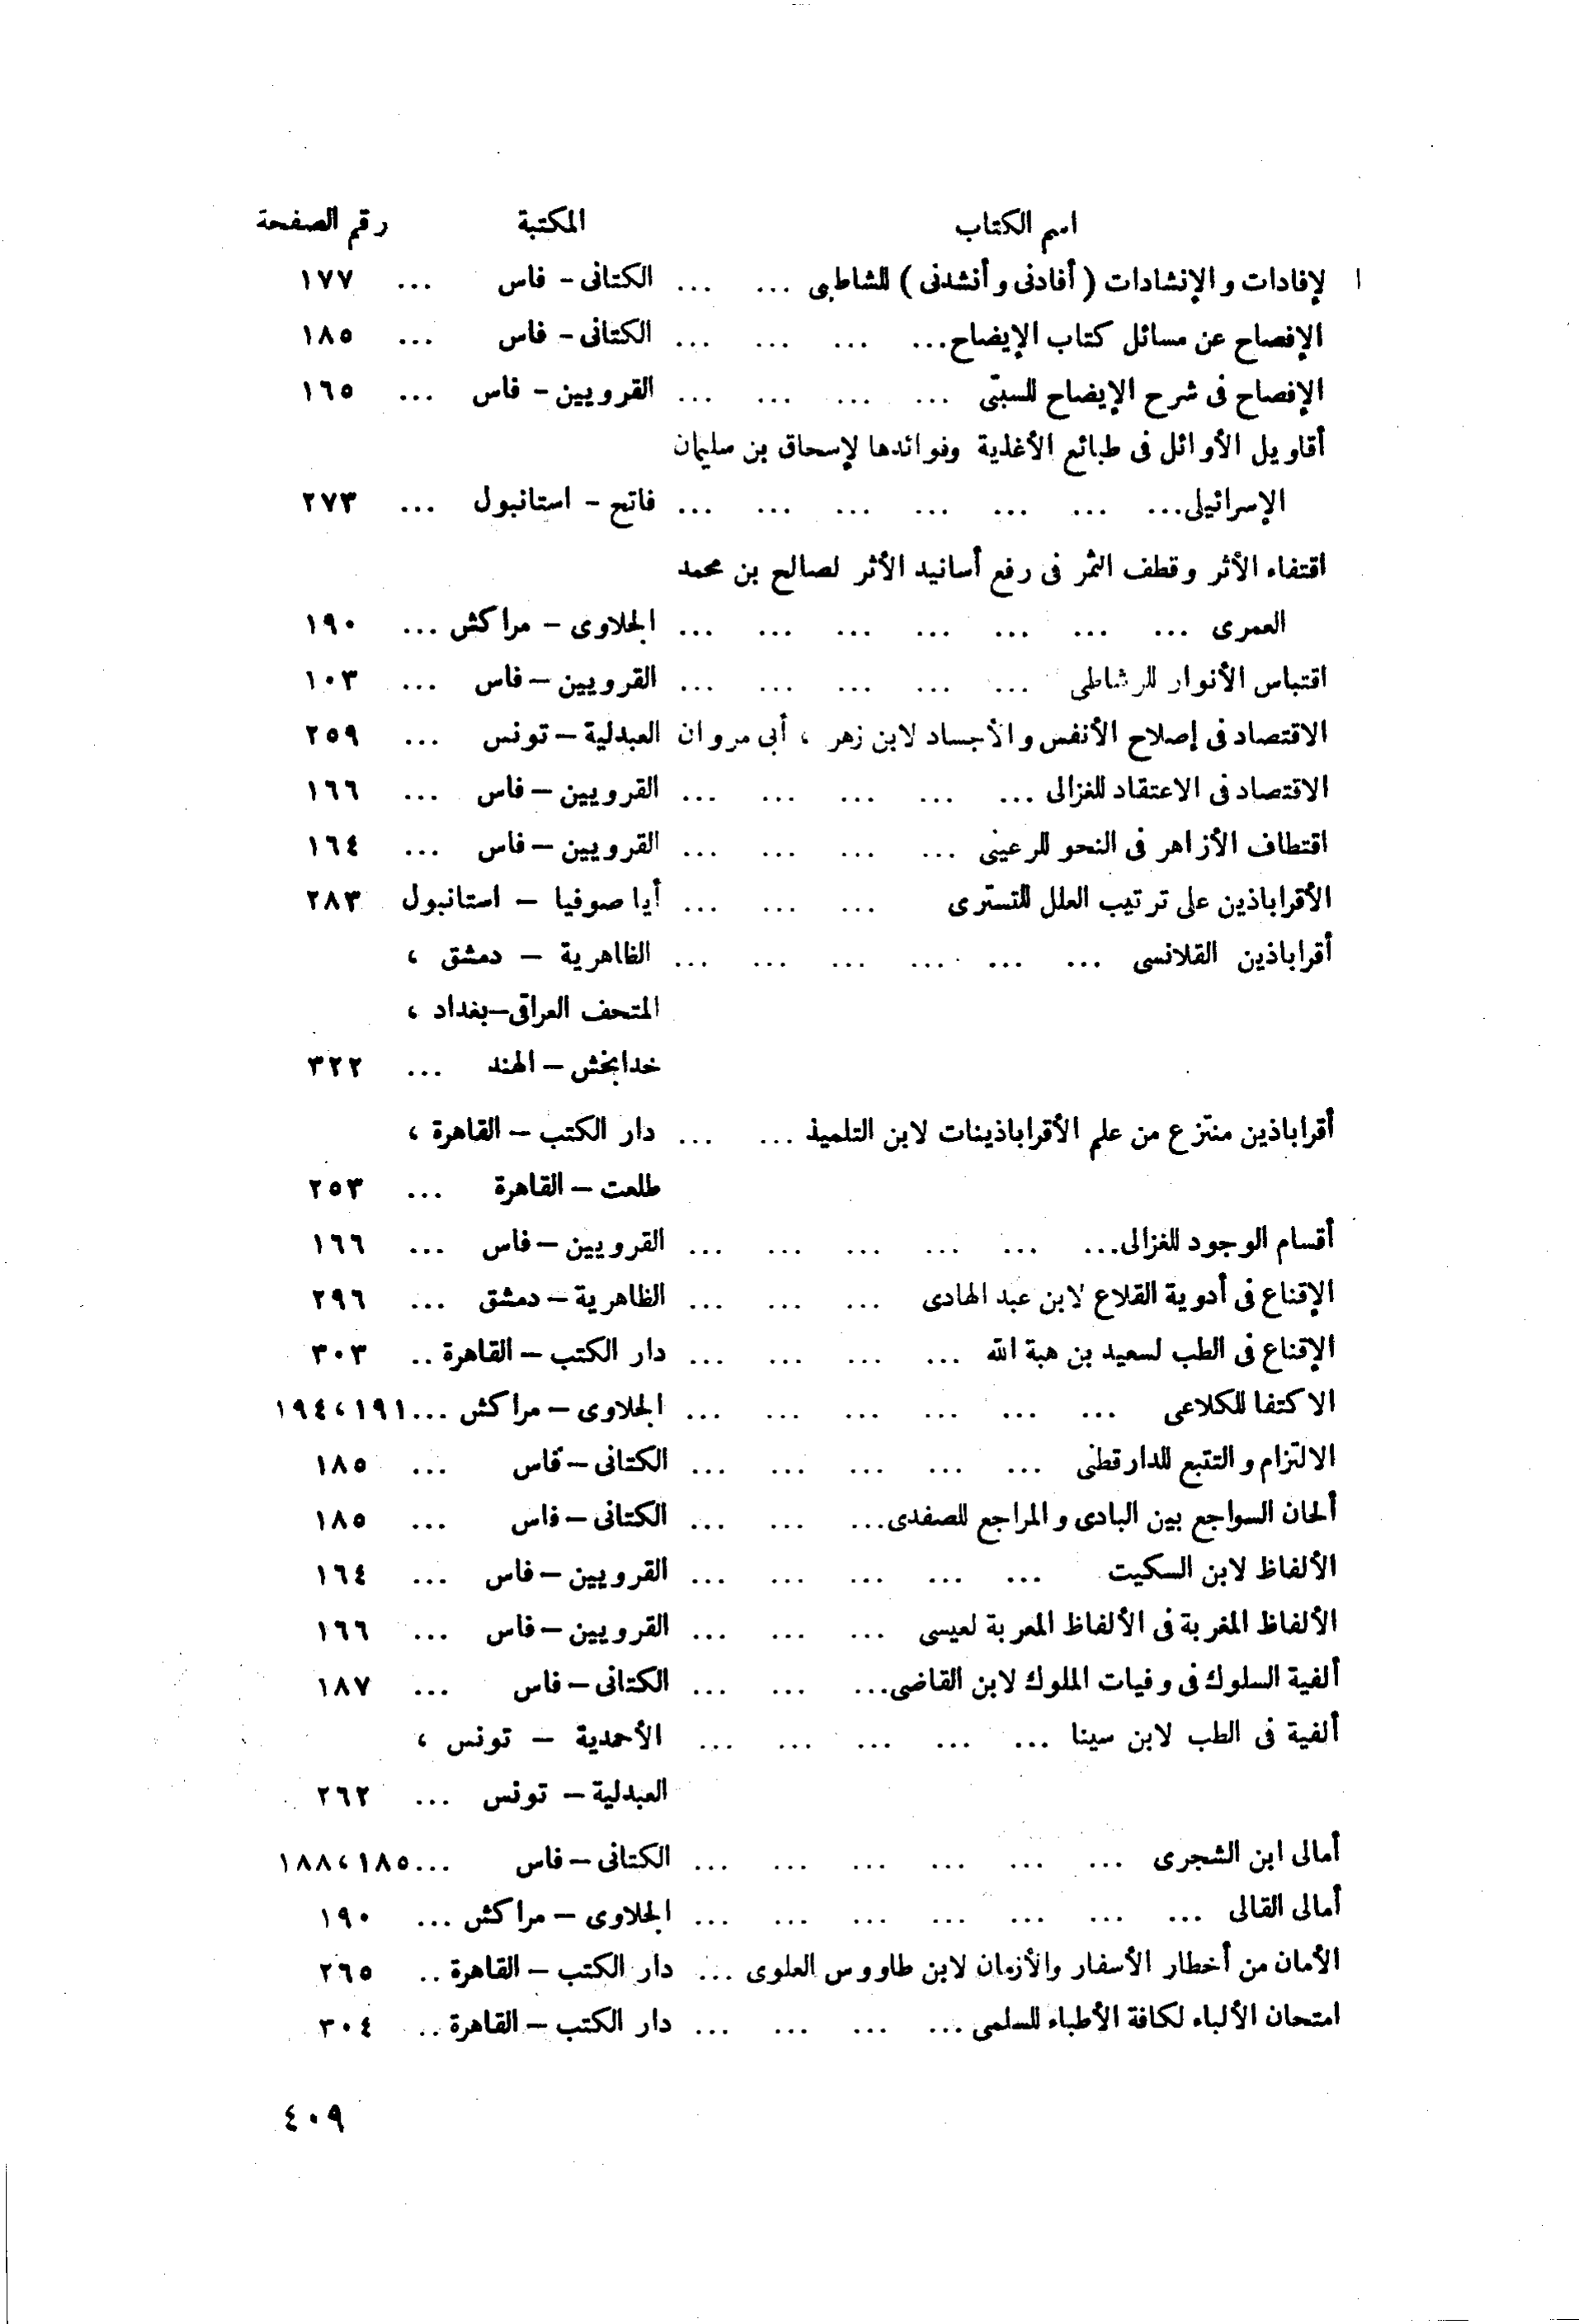 اسم الكتاب المكتبة رقم الصفحة
الإفادات والإنشادات ( أفادنى وأنشدنى ) للشاطبى ... ... الكتانى - فاس ... ١٧٧
الإفصاح عن مسائل كتاب الإيضاح... ... ... ... ... الكتانى - فاس ... ١٨٥
الإفصاح فى شرح الإيضاح للسبتى ... ... ... ... القرويين - فاس ... ١٦٥
أقاويل الأوائل فى طبائع الأغذية وفوائدها لإسحاق بن سليمان
الإسرائيلى... ... ... ... ... ... ... فاتح - استانبول ... ٢٧٣
اقتفاء الأثر وقطف الثمر فى رفع أسانيد الأثر لصالح بن محمد
العمرى ... ... ... ... ... ... ... الجلاوى - مراكش ... ١٩٠
اقتباس الأنوار للرشاطى ... ... ... ... ... القرويين - فاس ... ١٠٣
الاقتصاد فى إصلاح الأنفس والأجساد لابن زهر ، أبى مروان العبدلية - تونس ... ٢٥٩
الاقتصاد فى الاعتقاد للغزالى ... ... ... ... ... القرويين - فاس ... ١٦٦
اقتطاف الأزاهر فى النحو للرعينى ... ... ... ... القرويين - فاس ... ١٦٤
الأقراباذين على ترتيب العلل للتسترى ... ... ... أيا صوفيا - استانبول ٢٨٣
أقراباذين القلانسى ... ... ... ... ... ... الظاهرية - دمشق ،
المتحف العراقى - بغداد ،
خدابخش - الهند ... ٣٢٢
أقراباذين منتزع من علم الأقراباذينات لابن التلميذ ... ... دار الكتب - القاهرة ،
طلعت - القاهرة ... ٢٥٣
أقسام الوجود للغزالى... ... ... ... ... ... القرويين - فاس ... ١٦٦
الإقناع فى أدوية القلاع لابن عبد الهادى ... ... ... الظاهرية - دمشق ... ٢٩٦
الإقناع فى الطب لسعيد بن هبة الله ... ... ... ... دار الكتب - القاهرة .. ٣٠٣
الاكتفا للكلاعى ... ... ... ... ... ... الجلاوى - مراكش ...١٩١، ١٩٤
الالتزام والتتبع للدارقطنى ... ... ... ... ... الكتانى - فاس ... ١٨٥
ألحان السواجع بين البادى والمراجع للصفدى... ... ... الكتانى - فاس ... ١٨٥
الألفاظ لابن السكيت ... ... ... ... ... القرويين - فاس ... ١٦٤
الألفاظ المغربة فى الألفاظ المعربة لعيسى ... ... ... القرويين - فاس ... ١٦٦
ألفية السلوك فى وفيات الملوك لابن القاضى... ... ... الكتانى - فاس ... ١٨٧
ألفية فى الطب لابن سينا ... ... ... ... ... الأحمدية - تونس ،
العبدلية - تونس ... ٢٦٢
أمالى ابن الشجرى ... ... ... ... ... ... الكتانى - فاس ...١٨٥، ١٨٨
أمالى القالى ... ... ... ... ... ... ... الجلاوى - مراكش ... ١٩٠
الأمان من أخطار الأسفار والأزمان لابن طاووس العلوى ... دار الكتب - القاهرة .. ٢٦٥
امتحان الألباء لكافة الأطباء للسلمى ... ... ... ... دار الكتب - القاهرة .. ٣٠٤
٤٠٩